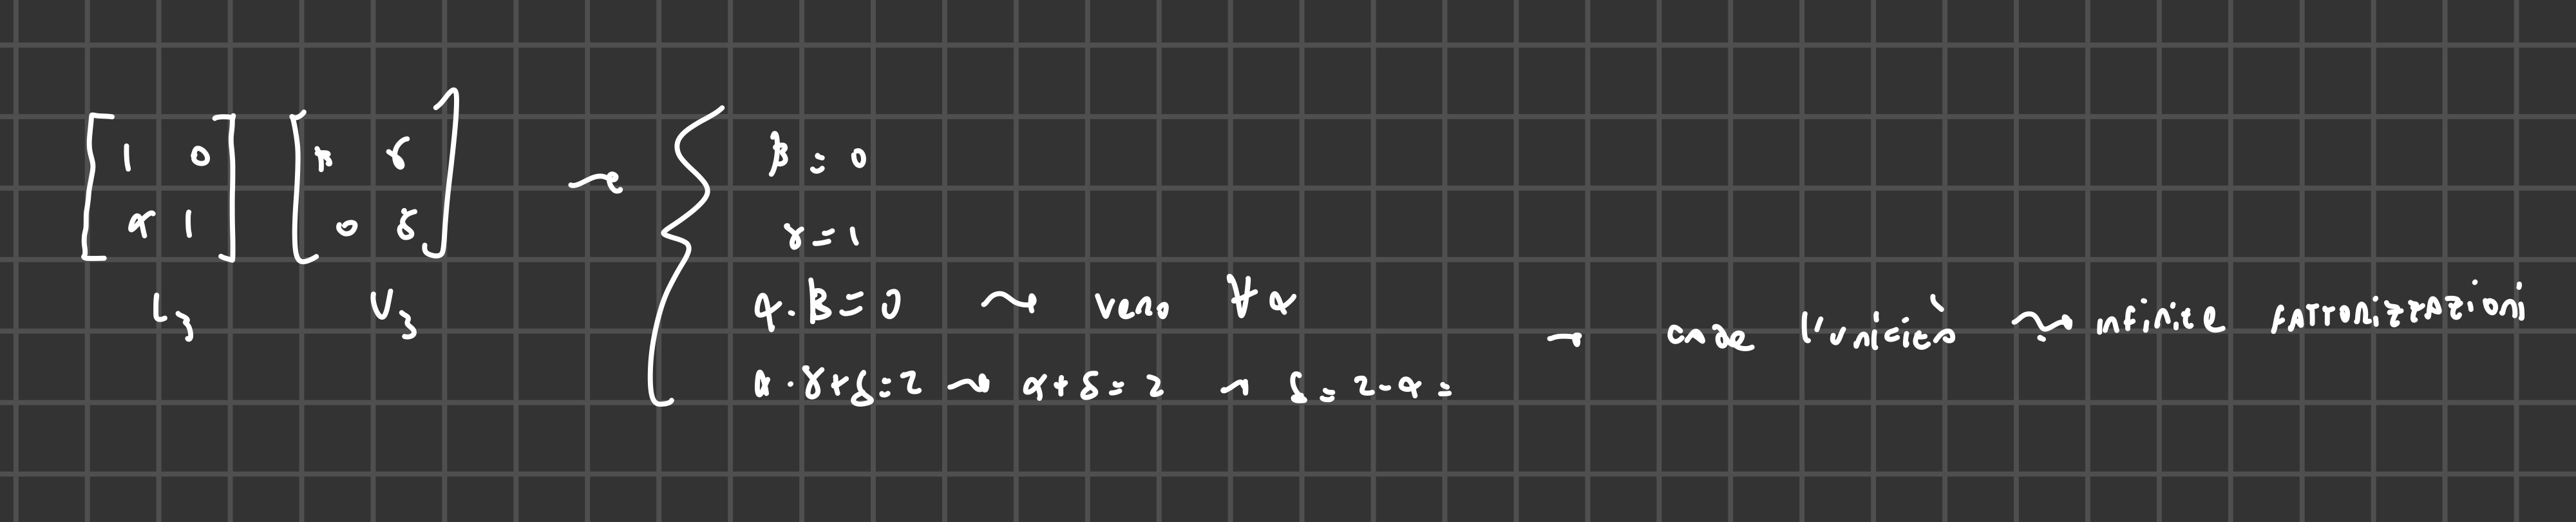 [1 0; α 1] [β γ; 0 δ] ⇝ {
L₃ U₃
β = 0
γ = 1
α · β = 0 ⇝ vero ∀ α
α · γ + δ = 2 ⇝ α + δ = 2 → δ = 2 - α =
→ cade l'unicità ⇝ infinite fattorizzazioni